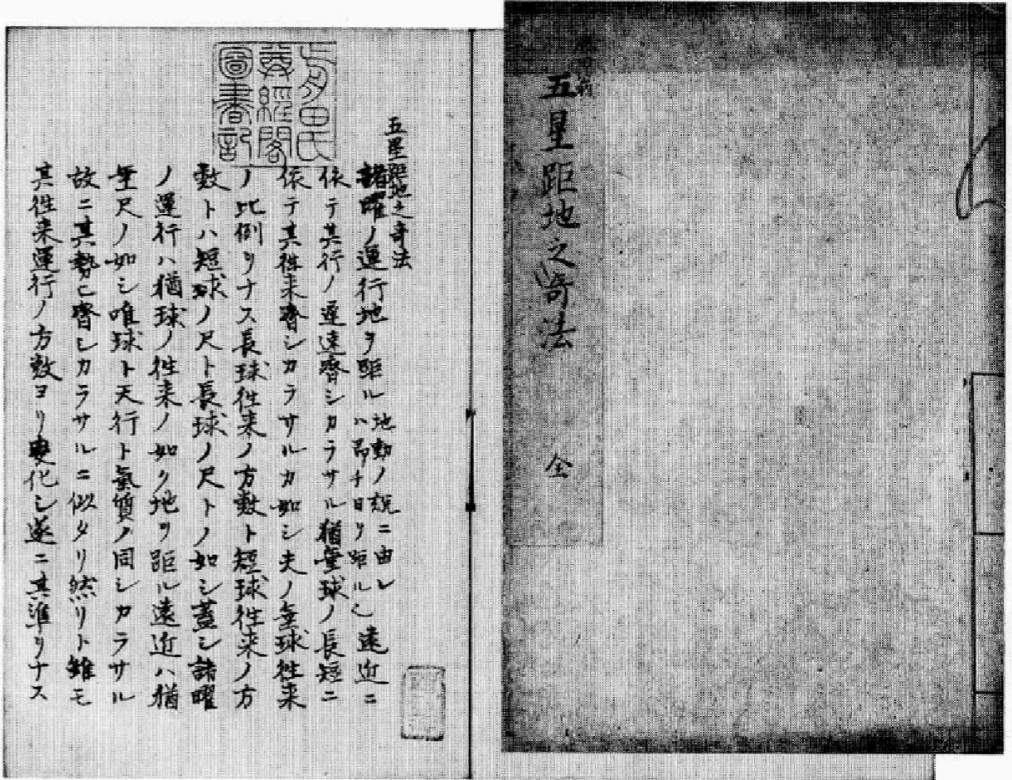 五星距地之奇法
全
五星距地之奇法
諸曜ノ運行地ヲ距ル
地動ノ説ニ由レ
ハ即チ日ヲ距ル也
遠近ニ
依テ其行ノ遅速齊シカラサル猶垂球ノ長短ニ
依テ其徃来齊シカラサルカ如シ夫ノ垂球徃来
ノ比例ヲナス長球徃来ノ方数ト短球徃来ノ方
数トハ短球ノ尺ト長球ノ尺トノ如シ蓋シ諸曜
ノ運行ハ猶球ノ徃来ノ如ク地ヲ距ル遠近ハ猶
垂尺ノ如シ唯球ト天行ト氣質ノ同シカラサル
故ニ其勢モ齊シカラサルニ似タリ然リト雖モ
其徃来運行ノ方数ヨリ変化シ遂ニ其準ヲナス
前田氏
尊經閣
圖書記